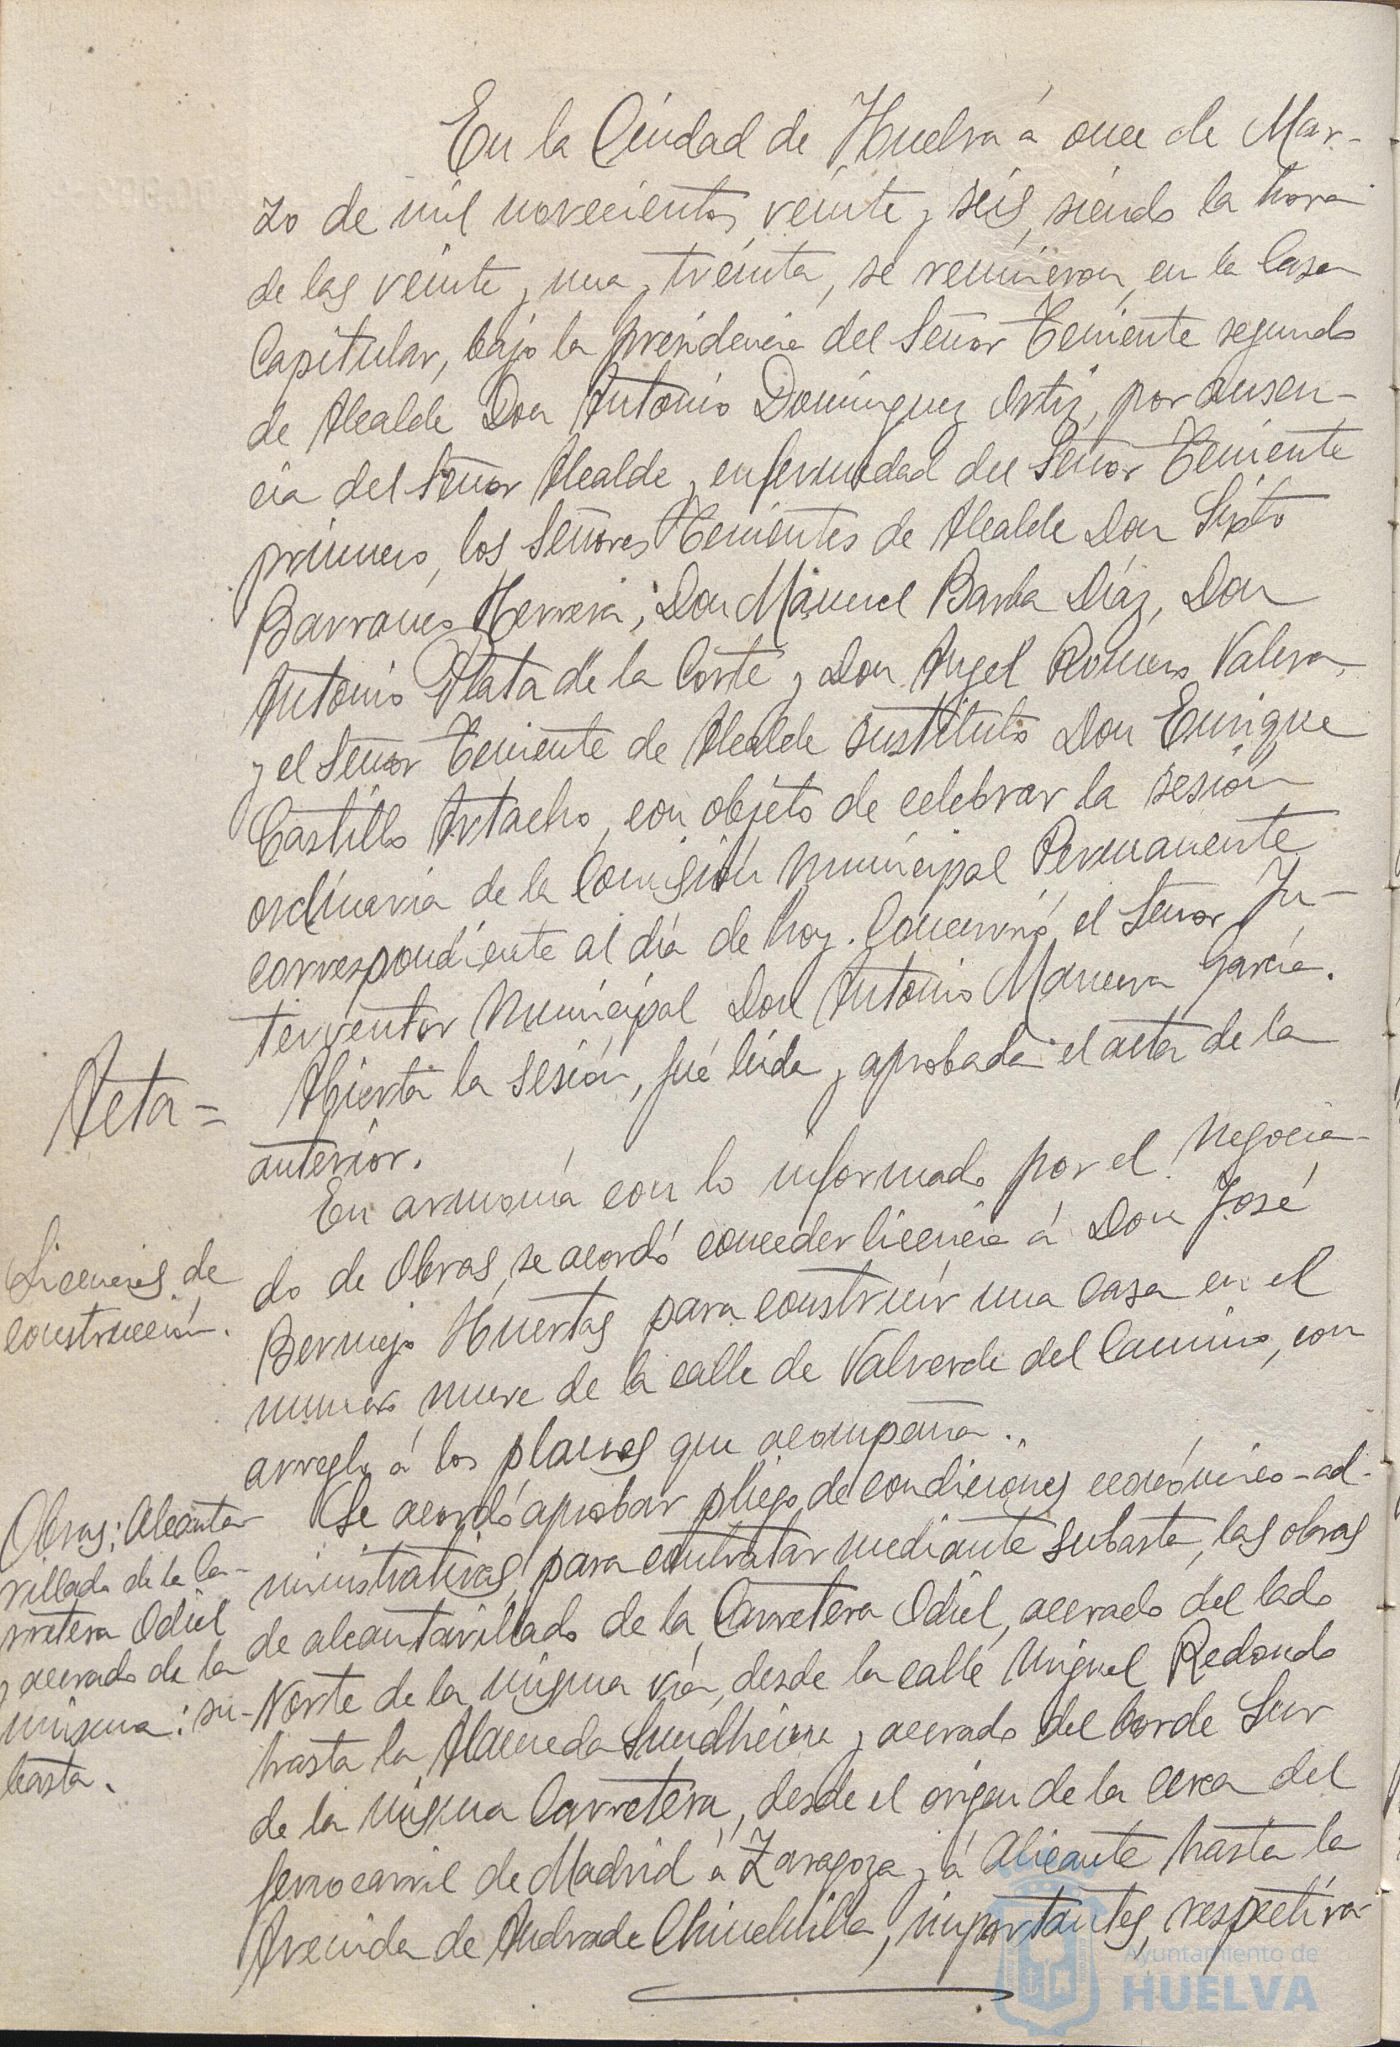 En la Ciudad de Huelva á once de Mar-
zo de mil novecientos veinte y seis, siendo la hora
de las veinte y una y treinta, se reunieron, en la Casa
Capitular, bajo la presidencia del Señor Teniente segundo
de Alcalde Don Antonio Domínguez Ortiz, por ausen-
cia del Señor Alcalde y enfermedad del Señor Teniente
primero, los Señores Tenientes de Alcalde Don Sixto
Barranco Herrera, Don Manuel Barba Díaz, Don
Antonio Plata de la Corte y Don Angel Romero Valera,
y el Señor Teniente de Alcalde sustituto Don Enrique
Castillo Artacho, con objeto de celebrar la sesión
ordinaria de la Comisión Municipal Permanente
correspondiente al día de hoy. Concurrió el Señor In-
terventor Municipal Don Antonio García.
Acta=
Abierta la sesión, fué leida y aprobada el acta de la
anterior.
Licencias de
construcción.
En armonía con lo informado por el Negocia-
do de Obras, se acordó conceder licencia á Don José
Bermejo Huertas para construir una casa en el
numero nueve de la calle de Valverde del Camino, con
arreglo á los planos que acompaña.
Obras: Alcanta-
rillado de la Ca-
rretera Odiel
y acerado de la
misma: su-
basta.
Se acordó aprobar pliego de condiciones económico-ad-
ministrativas, para contratar mediante subasta, las obras
de alcantarillado de la Carretera Odiel, acerado del lado
Norte de la misma vía, desde la calle Miguel Redondo
hasta la Alameda Sundheim y acerado del borde Sur
de la misma Carretera, desde el origen de la cerca del
ferrocarril de Madrid á Zaragoza y á Alicante hasta la
Avenida de Andrade Chinchilla, importantes, respectiva-
Ayuntamiento de
HUELVA